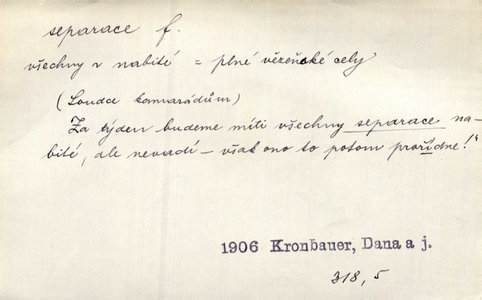 separace f.
všechny s nabité = plné vězeňské cely
(Soudce kamarádům)
Za týden budeme míti všechny separace na-
bité, ale nevadí – však ono to potom prořídne!"
1906 Kronbauer, Dana a j.
318, 5